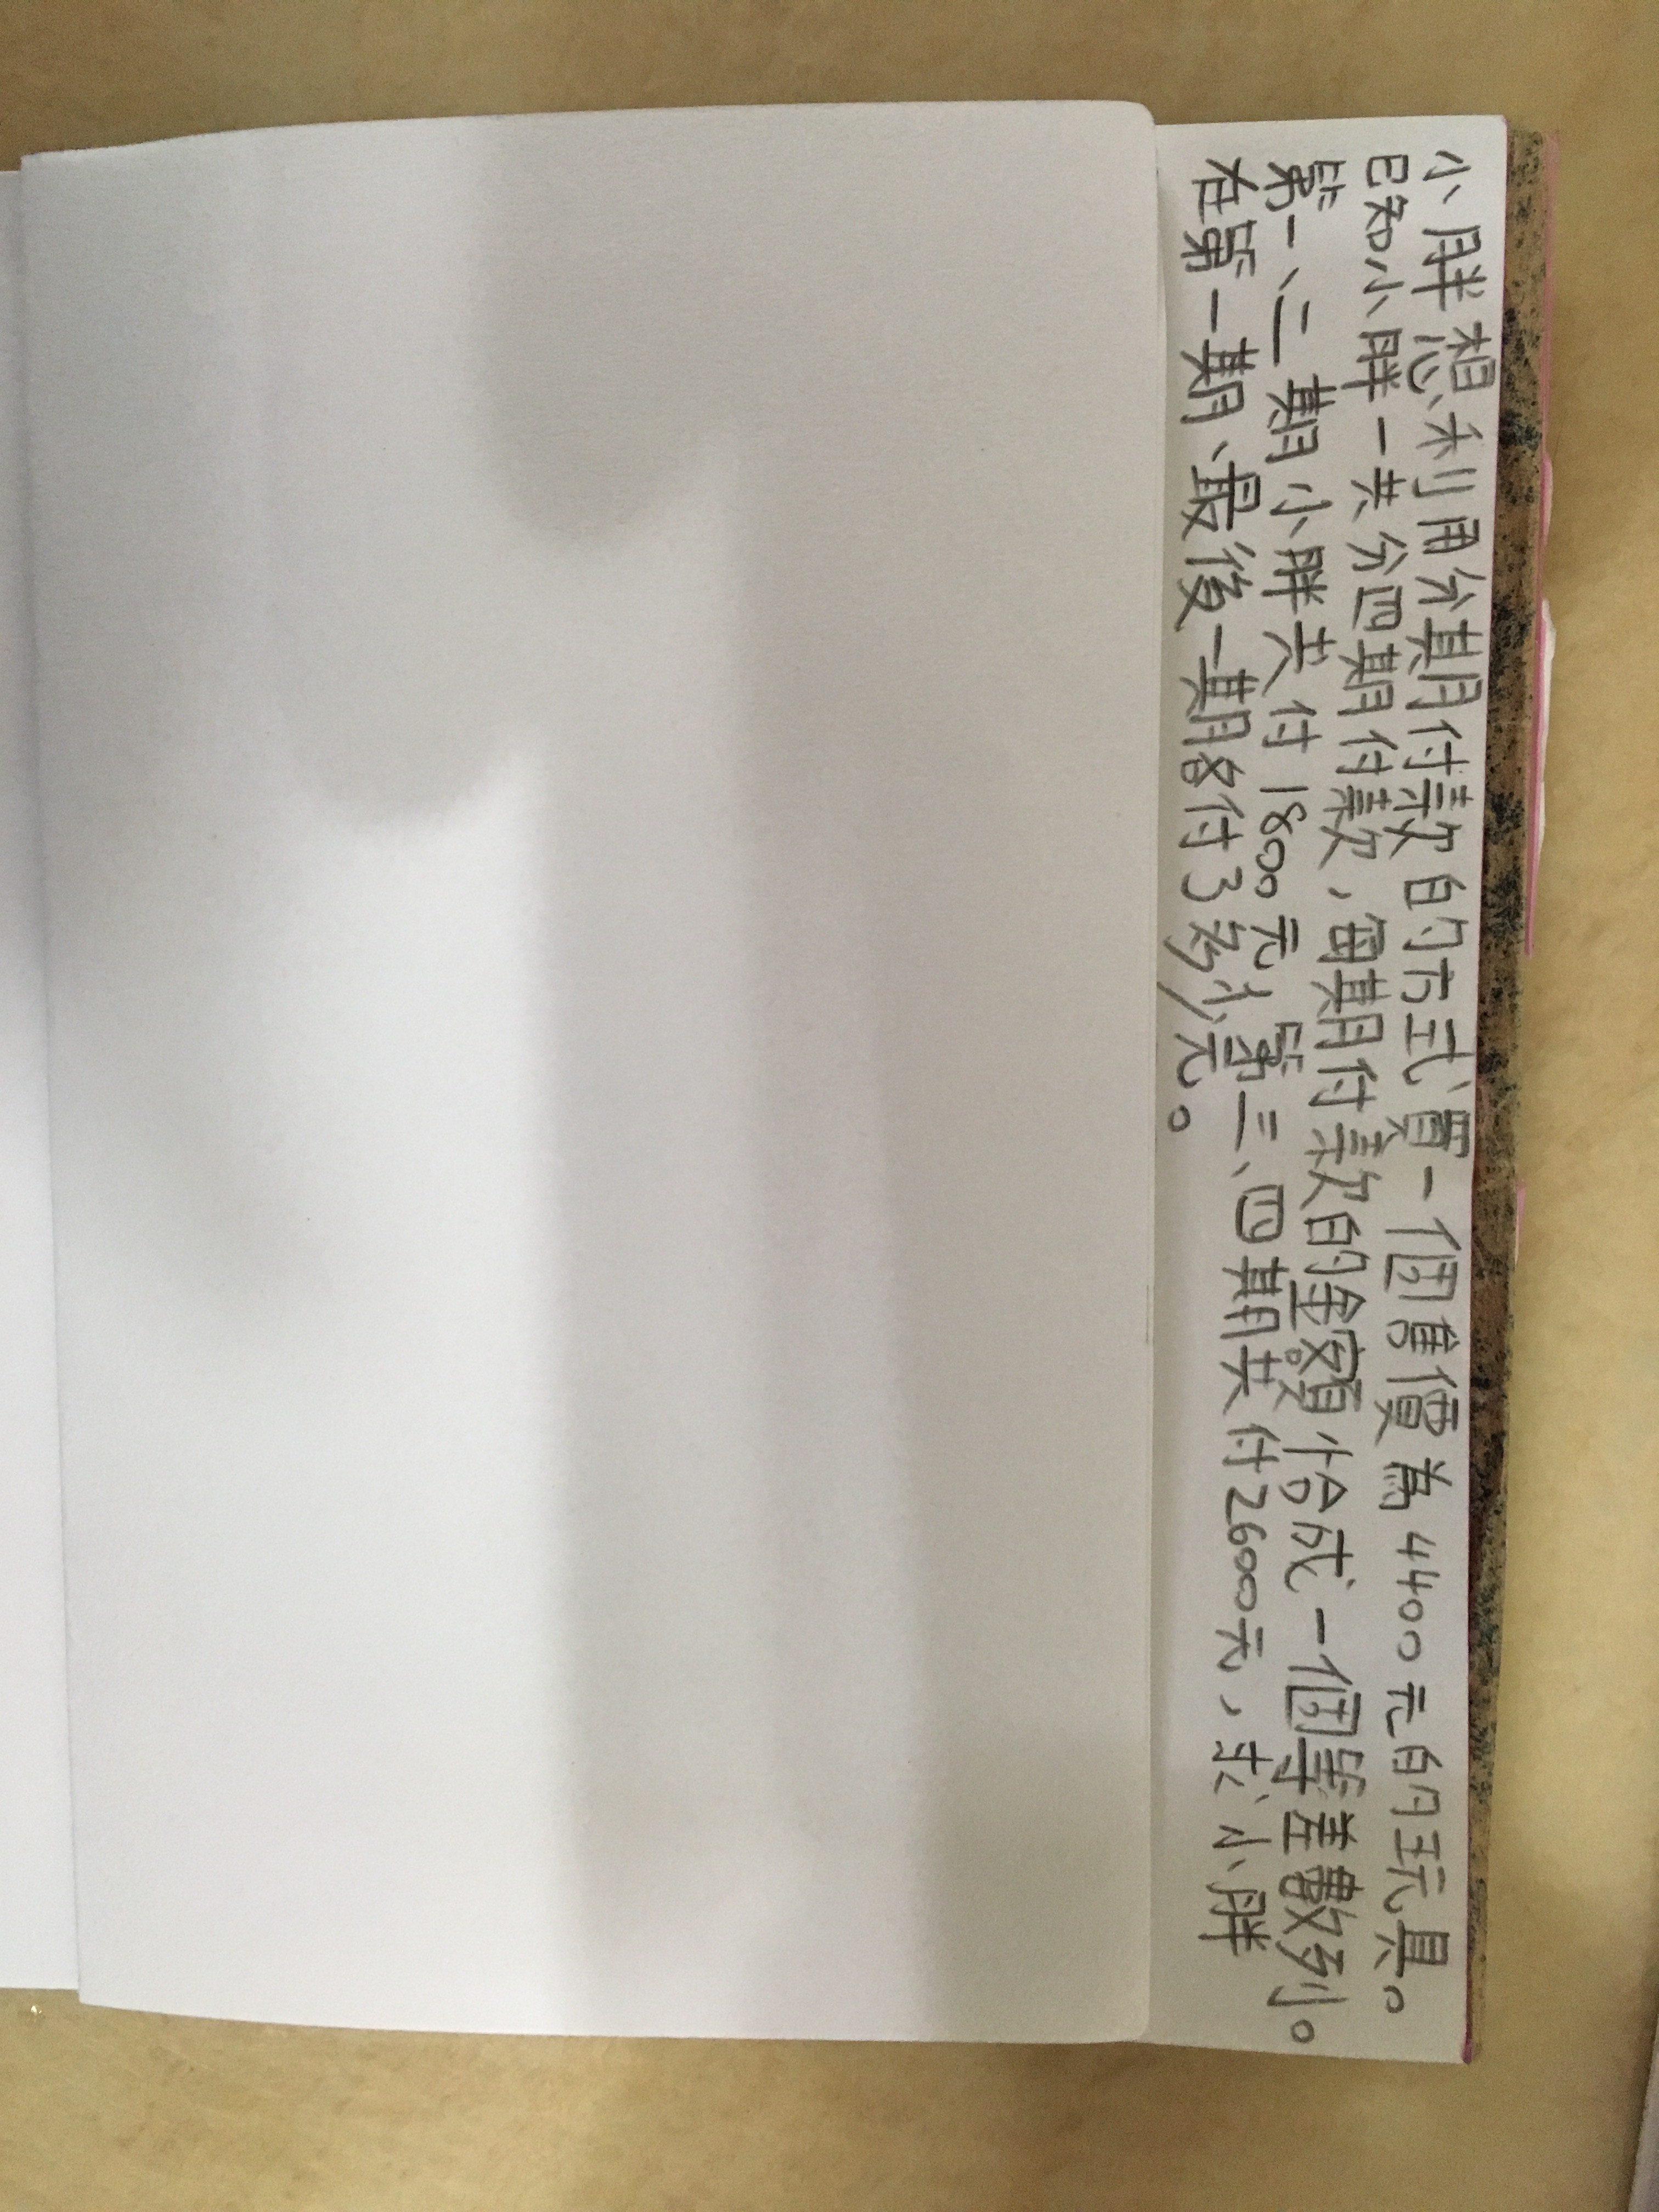 小胖想利用分期付款的方式買一個售價為4400元的玩具。
已知小胖一共分四期付款,每期付款的金額恰成一個等差數列。
第一、二期小胖共付1800元,第三、四期共付2600元,求小胖
在第一期、最後一期各付了多少元。